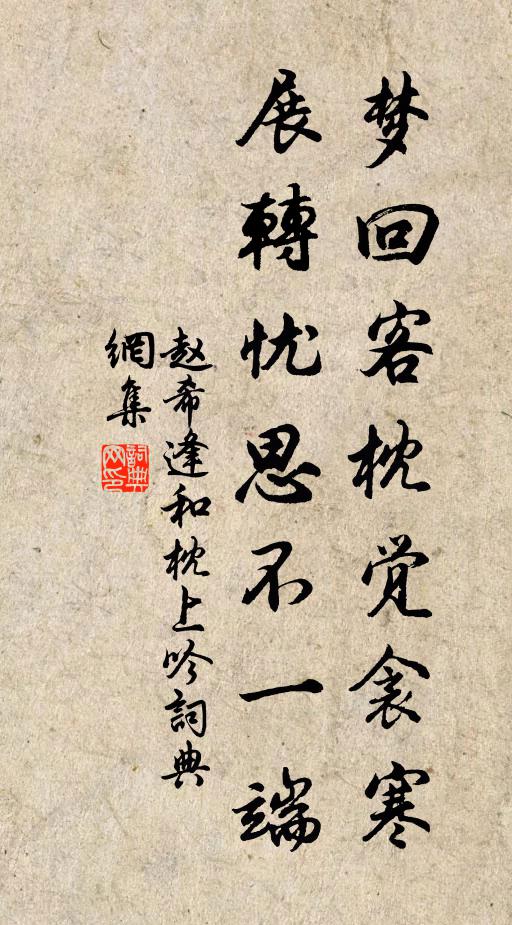 梦回客枕觉衾寒
展轉忧思不一端
赵希逢和枕上吟詞典
網集
詞典网印